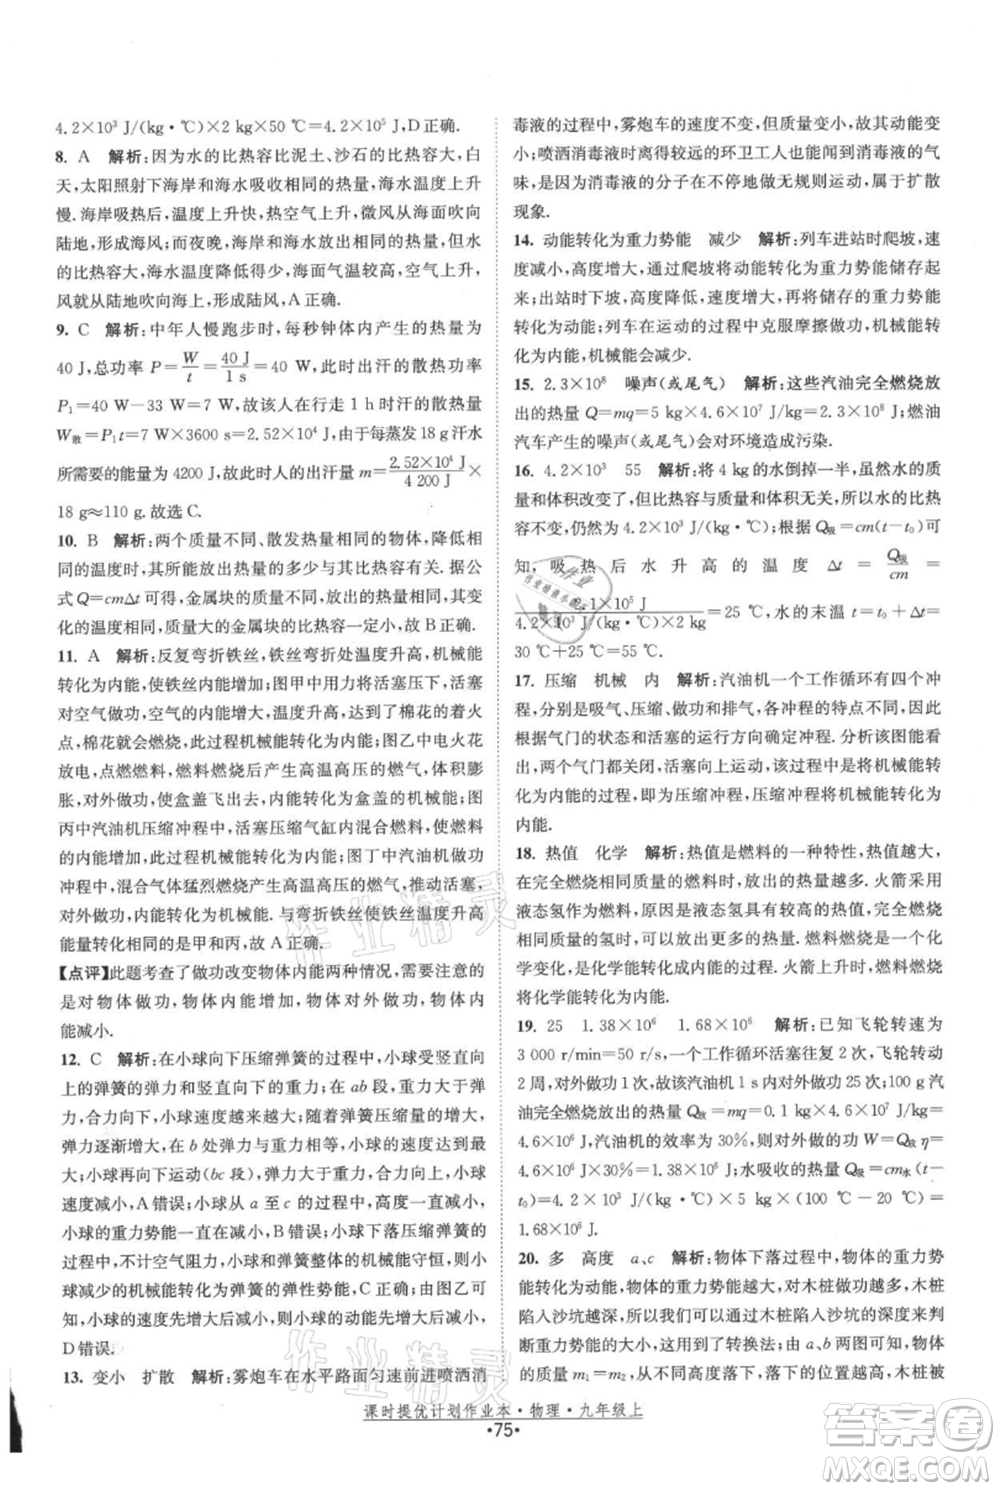 4.2×10³ J/(kg·℃)×2 kg×50 ℃=4.2×10⁵ J,D正确.
8. A 解析:因为水的比热容比泥土、沙石的比热容大,白
天,太阳照射下海岸与海水吸收相同的热量,海水温度上升
慢.海岸吸热后,温度上升快,热空气上升,微风从海面吹向
陆地,形成海风;而夜晚,海岸和海水放出相同的热量,海水
的温度降低得慢,海面温度较高,空气上升,
风就从陆地吹向海上,A正确.
9. C 解析:中年人慢跑步时,每秒钟体内产生的热量为
40 J,总功率 P=W/t=40 J/1 s=40 W,此时出汗的散热功率
P₁=40 W-33 W=7 W,故该人在行走 1 h 时汗的散热量
W散=P₁t=7 W×3600 s=2.52×10⁴ J,由于每蒸发 18 g 汗水
所需的能量为 4200 J,故此人的出汗量 m=2.52×10⁴ J/4 200 J×
18 g≈110 g.故选C.
10. B 解析:两个质量不同、散发热量相同的物体,降低
的温度不同,散发热量的多少与其比热容有关.根据公
式 Q=cmΔt 可得,金属块的比热容不一定小,温度变化
小,质量大的金属块的比热容一定小,故B正确.
11. A 解析:反复弯折铁丝,铁丝弯折处温度升高,机械能
转化为内能,使铁丝内能增加;图甲中用力将活塞压下,活塞
对空气做功,空气的内能增大,温度升高,达到了棉花的着火
点,棉花就会燃烧,此过程机械能转化为内能;图乙中电火花
放电,点燃燃料,燃料燃烧后产生高温高压的燃气,体积膨
胀,对外做功,使盒盖飞出去,内能转化为盒盖的机械能;图
丙中汽油机压缩冲程,活塞压缩气缸内混合燃料,使燃料内
能增加,此过程机械能转化为内能;图丁中汽油机的做功
冲程中,汽油猛烈燃烧产生高温高压的燃气,推动活塞
做功,内能转化为机械能.与弯折铁丝使铁丝温度升高
能量转化相同的是甲和丙,故 A 正确.
【点评】此题考查了做功改变物体内能两种情况,需要注意的
是对物体做功,物体内能增加,物体对外做功,物体内
能减小.
12. C 解析:在小球向下压缩弹簧的过程中,小球受竖直向
上的弹簧的弹力和竖直向下的重力;在 ab 段,重力大于弹
力,合力向下,小球速度越来越大;随着弹簧压缩量的增大,
弹力逐渐增大,在 b 处弹力与重力相等;小球
再向下运动(bc 段),弹力大于重力,合力向上,小球
速度减小,A错误;小球从 a 至 c 的过程中,高度一直减小,
小球的重力势能一直在减小,B错误;小球下落压缩弹簧的过
程中,不计空气阻力,小球和弹簧的机械能守恒,则小
球减少的机械能等于弹簧的弹性势能,C正确;由图乙可
知,小球的速度先增大后减小,动能先增大后减小,
D错误.
13. 变小 扩散 解析:雾炮车在水平路面匀速前进喷洒消
毒液的过程中,雾炮车的速度不变,质量变小,所以动能变
小;喷洒消毒液时离得较远的环卫工人也能闻到消毒液的气
味,是因为消毒液的分子在不停地做无规则运动,属于扩散
现象.
14. 动能转化为重力势能 减少 解析:列车进站时爬坡,速
度减小,高度增加,从而把动能转化为重力势能储存起
来;出站时下坡,高度减小,速度增大,储存的重力势能
转化为动能.列车在运动的过程中克服摩擦做功,机械能转
化为内能,机械能会减少.
15. 2.3×10⁸ 噪声(或尾气) 解析:这些汽油完全燃烧放
出的热量 Q=mq=5 kg×4.6×10⁷ J/kg=2.3×10⁸ J;燃油
汽车产生的噪声(或尾气)会对环境造成污染.
16. 4.2×10³ 55 解析:将 4 kg 的水倒掉一半,虽然水的质
量和体积改变了,但比热容与质量和体积无关,所以水的比热
容不变,仍然为 4.2×10³ J/(kg·℃);根据 Q吸=cm(t-t₀)可
知,吸热后水升高的温度 Δt=Q吸/cm=
2.1×10⁵ J/4.2×10³ J/(kg·℃)×2 kg=25 ℃,水的末温 t=t₀+Δt=
30 ℃+25 ℃=55 ℃.
17. 压缩 机械 内 解析:汽油机一个工作循环有四个冲
程,分别是吸气、压缩、做功和排气,各冲程的特点不同,可以
根据气门的状态和活塞的运行方向确定.分析该图能看
出,两个气门都关闭,活塞向上运动,是压缩冲程,机械能转化为
内能.
18. 热值 化学 解析:热值是燃料的一种特性,热值越大,
在完全燃烧相同质量的燃料时,放出的热量越多.火箭采用
液态氢作为燃料,是因为液态氢具有较大的热值,完全燃烧
相同质量的氢时,可以释放更多的热量.燃料燃烧是一种化
学变化,将化学能转化为内能.火箭上升时,燃料燃烧
将化学能转化为内能.
19. 25 1.38×10⁶ 1.68×10⁶ 解析:已知飞轮转速为
3 000 r/min=50 r/s,一个工作循环活塞往复 2 次,飞轮转动
2 周,对外做功 1 次,故该汽油机 1 s 内对外做功 25 次;100 g 汽
油完全燃烧放出的热量 Q放=mq=0.1 kg×4.6×10⁷ J/kg=
4.6×10⁶ J;汽油机的效率为 30%,对外做的功 W=Q放η
=4.6×10⁶ J×30%=1.38×10⁶ J;水吸收的热量 Q吸=cm水(t-
t₀)=4.2×10³ J/(kg·℃)×5 kg×(100 ℃-20 ℃)=
1.68×10⁶ J.
20. 多 高度 a、c 解析:物体下落过程中,物体的重力势
能转化为动能,物体的重力势能越大,对木桩做功越多,木桩
陷入沙坑的深度越大,所以实验中通过木桩陷入沙坑的深度来
判断重力势能的大小,这是转换法;由 a、b 两图可知,物体的
质量 m₁=m₂,物体下落的高度不同,木桩被
课时提优计划作业本·物理·九年级上
·75·
作业精灵
作业精灵
答案圈
MXQE.COM